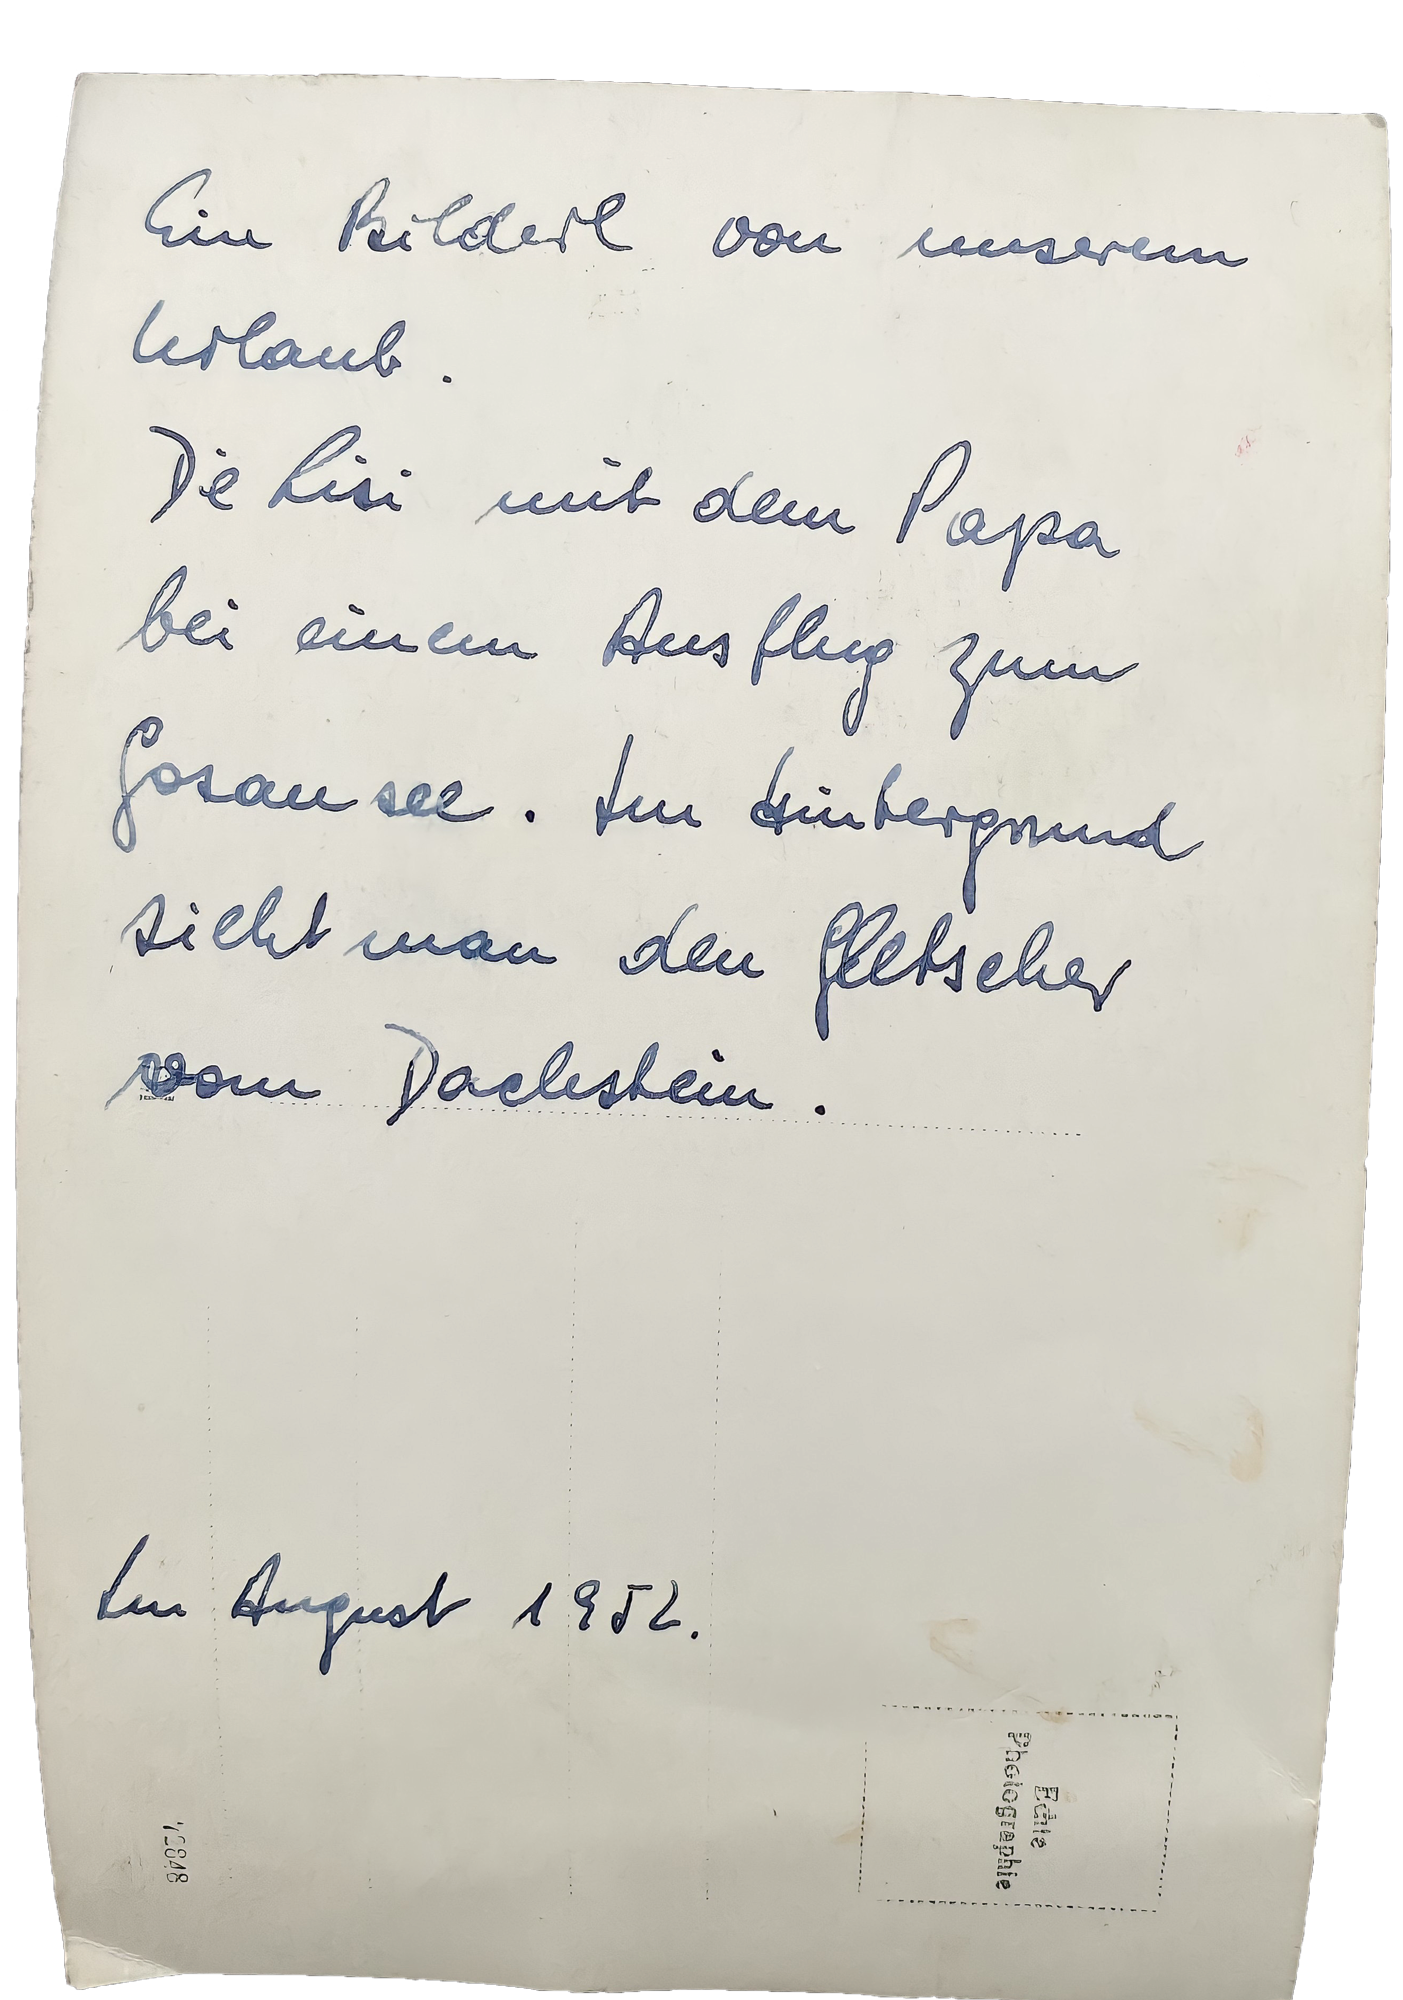 Ein Bilderl von unserem
Urlaub.
Die Lisi mit dem Papa
bei einem Ausflug zum
Gosausee. Im Hintergrund
sieht man den Gletscher
vom Dachstein.
Im August 1952.
Echte
Photographie